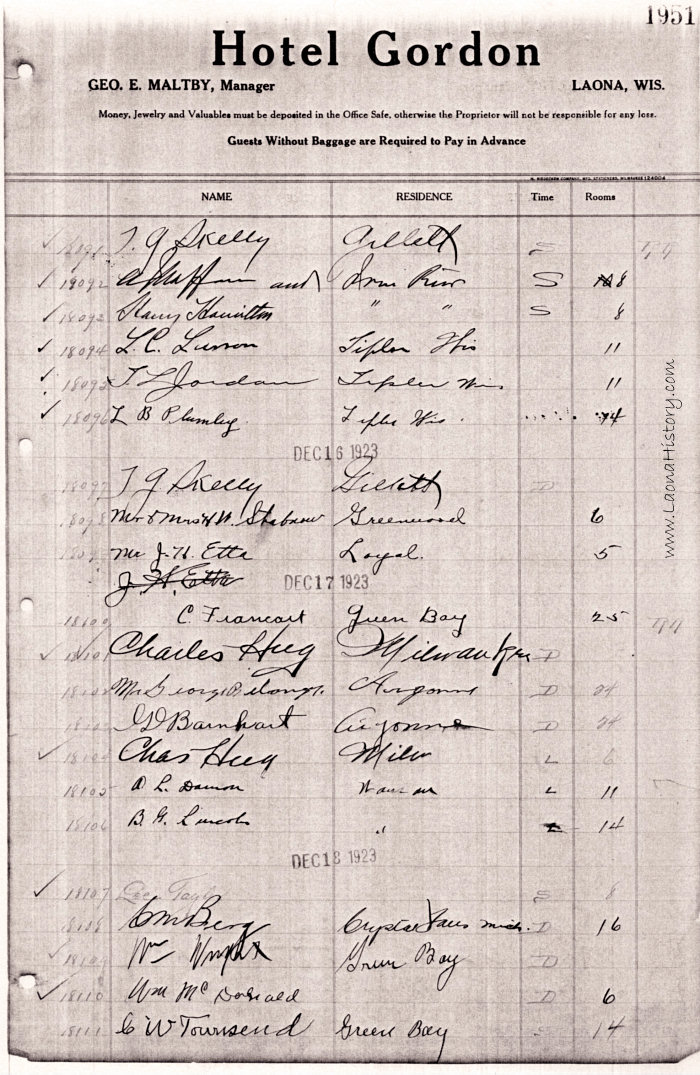 1951
Hotel Gordon
GEO. E. MALTBY, Manager LAONA, WIS.
Money, Jewelry and Valuables must be deposited in the Office Safe, otherwise the Proprietor will not be responsible for any loss.
Guests Without Baggage are Required to Pay in Advance
NAME RESIDENCE Time Rooms
T G Skelly Gillett S
18092 and Iron River S 8
18093 Harry Hamilton " " S 8
18094 L. C. Tipler Wis 11
18095 T. L. Jordan Tipler Wis 11
18096 L B Plumley. Tipler Wis. 14
DEC 16 1923
18097 T G Skelly Gillett D
18098 Mr & Mrs Greenwood 6
Mr J. H. Etta Loyal. 5
J. H. Etta
DEC 17 1923
18100 C. Francart Green Bay 25
18101 Charles Hug Milwaukee D
18102 Mr George Argonne D 24
18103 G D Barnhart Argonne D 24
18104 Chas Hug Milw L 6
18105 L. Damon Wausau L 11
18106 B. G. Lincoln " L 14
DEC 18 1923
18107 Lee Taylor S 8
18108 C M Berg Crystal Falls Mich. D 16
18109 Wm Wright Green Bay D
18110 Wm McDonald D 6
18111 C W Townsend Green Bay S 14
www.LaonaHistory.com